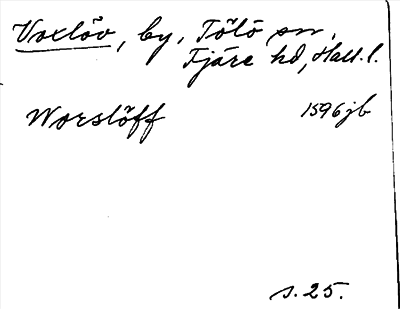 Voxlöv, by, Tölö sn,
Fjäre hd, Hall.l.
Worslöff 1596 jb
s. 25.